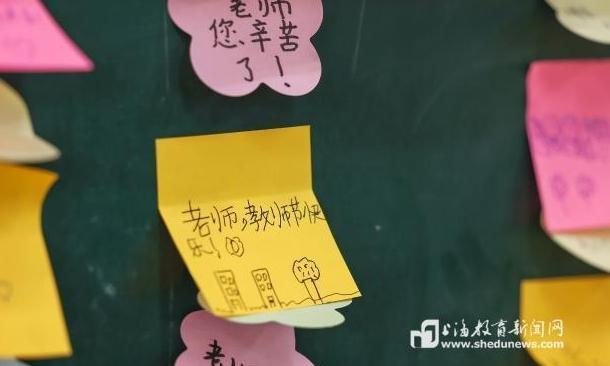 老师
您辛苦
了！
老师，教师节快
乐！
上海教育新闻网
www.shedunews.com